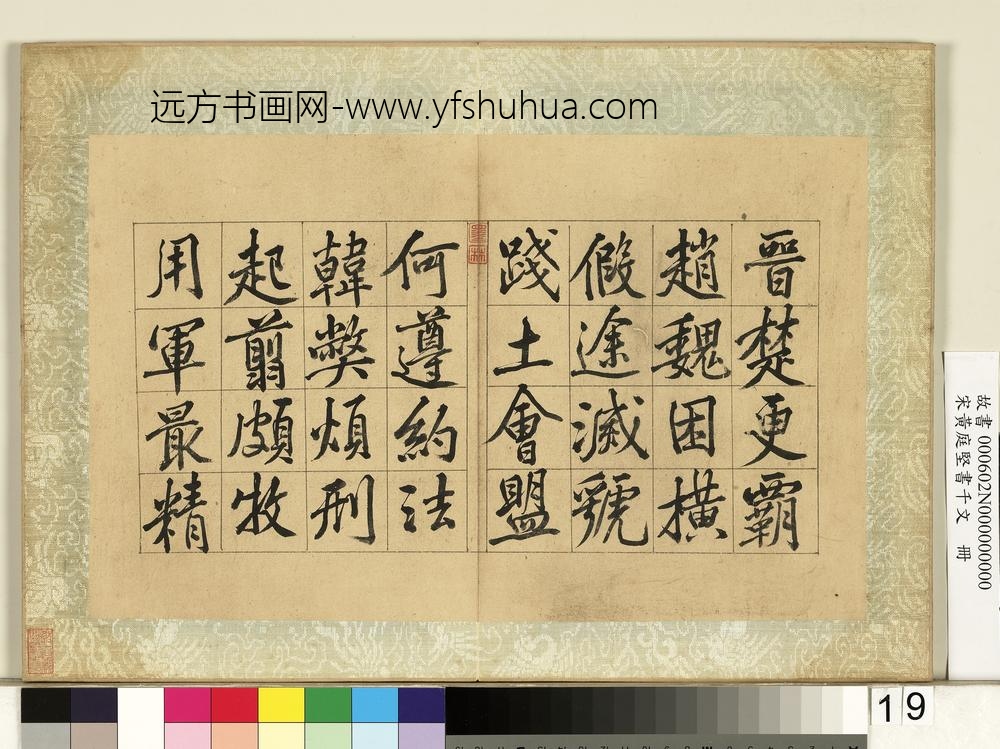 远方书画网-www.yfshuhua.com
晉楚更霸
趙魏困橫
假途滅虢
踐土會盟
何遵約法
韓弊煩刑
起翦頗牧
用軍最精
故書 000602N000000000
宋黃庭堅書千文 冊
19